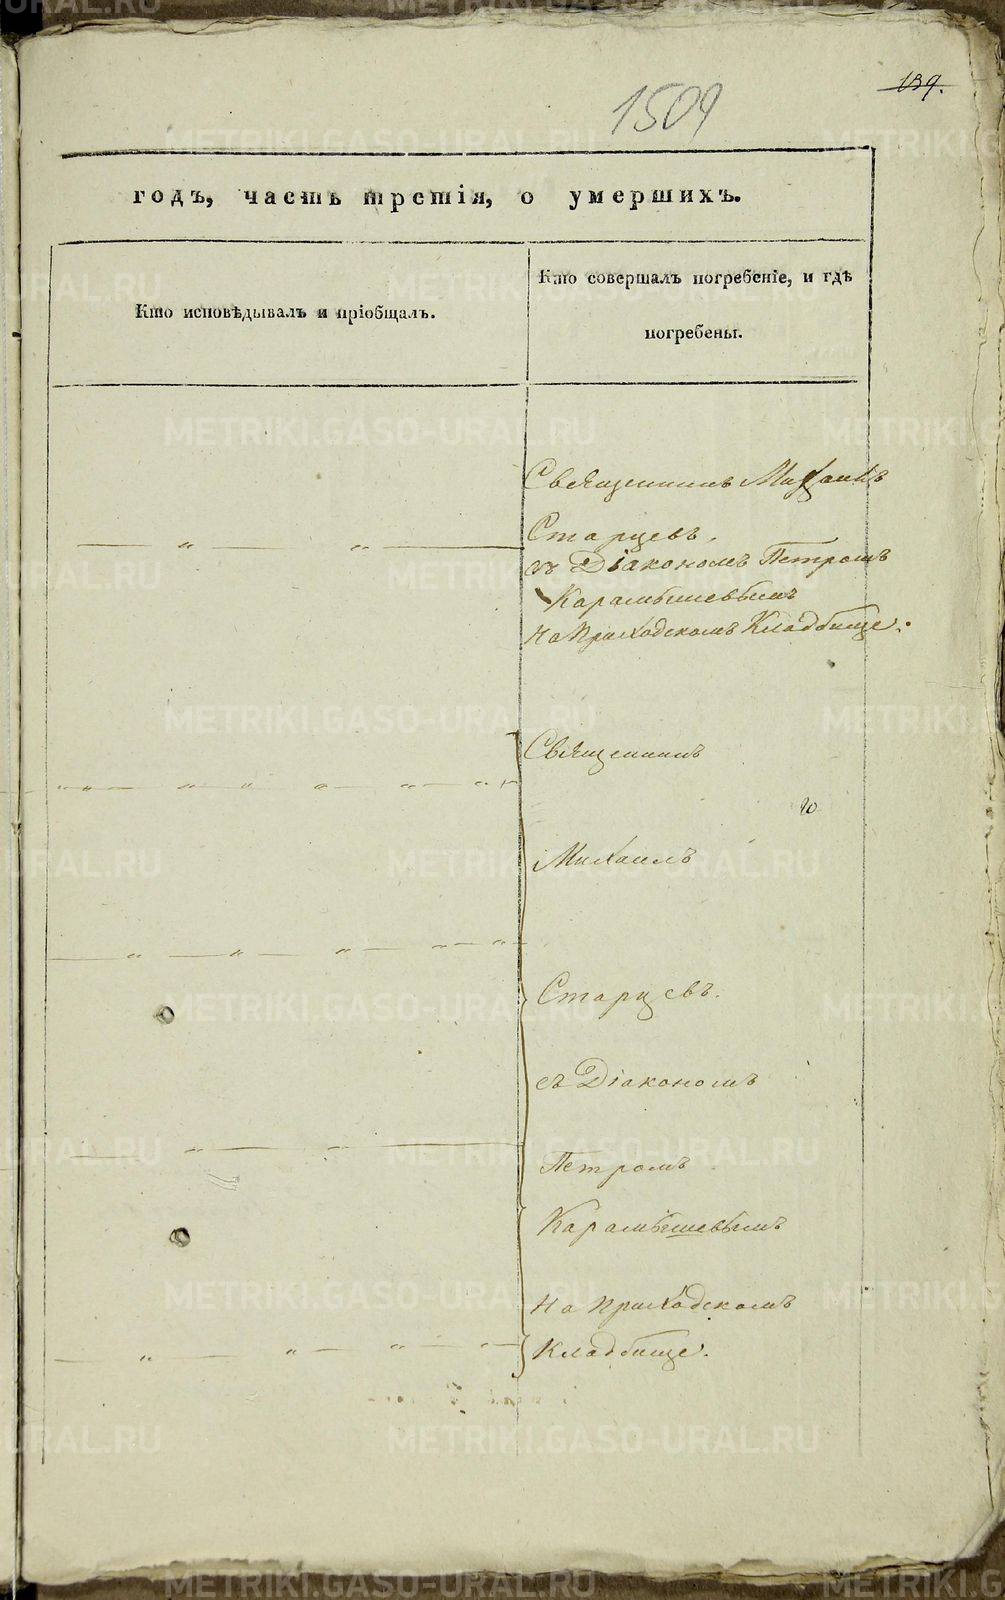 139.
1509
годъ, часть третія, о умершихъ.
Кто исповѣдывалъ и пріобщалъ.
Кто совершалъ погребеніе, и гдѣ
погребены.
Священникъ Михаилъ
Старцевъ,
съ Діакономъ Петромъ
Карамышевымъ
На Приходскомъ Кладбище.
Священникъ
Михаилъ
Старцевъ.
съ Діакономъ
Петромъ
Карамышевымъ
На Приходскомъ
Кладбище.
METRIKI.GASO-URAL.RU